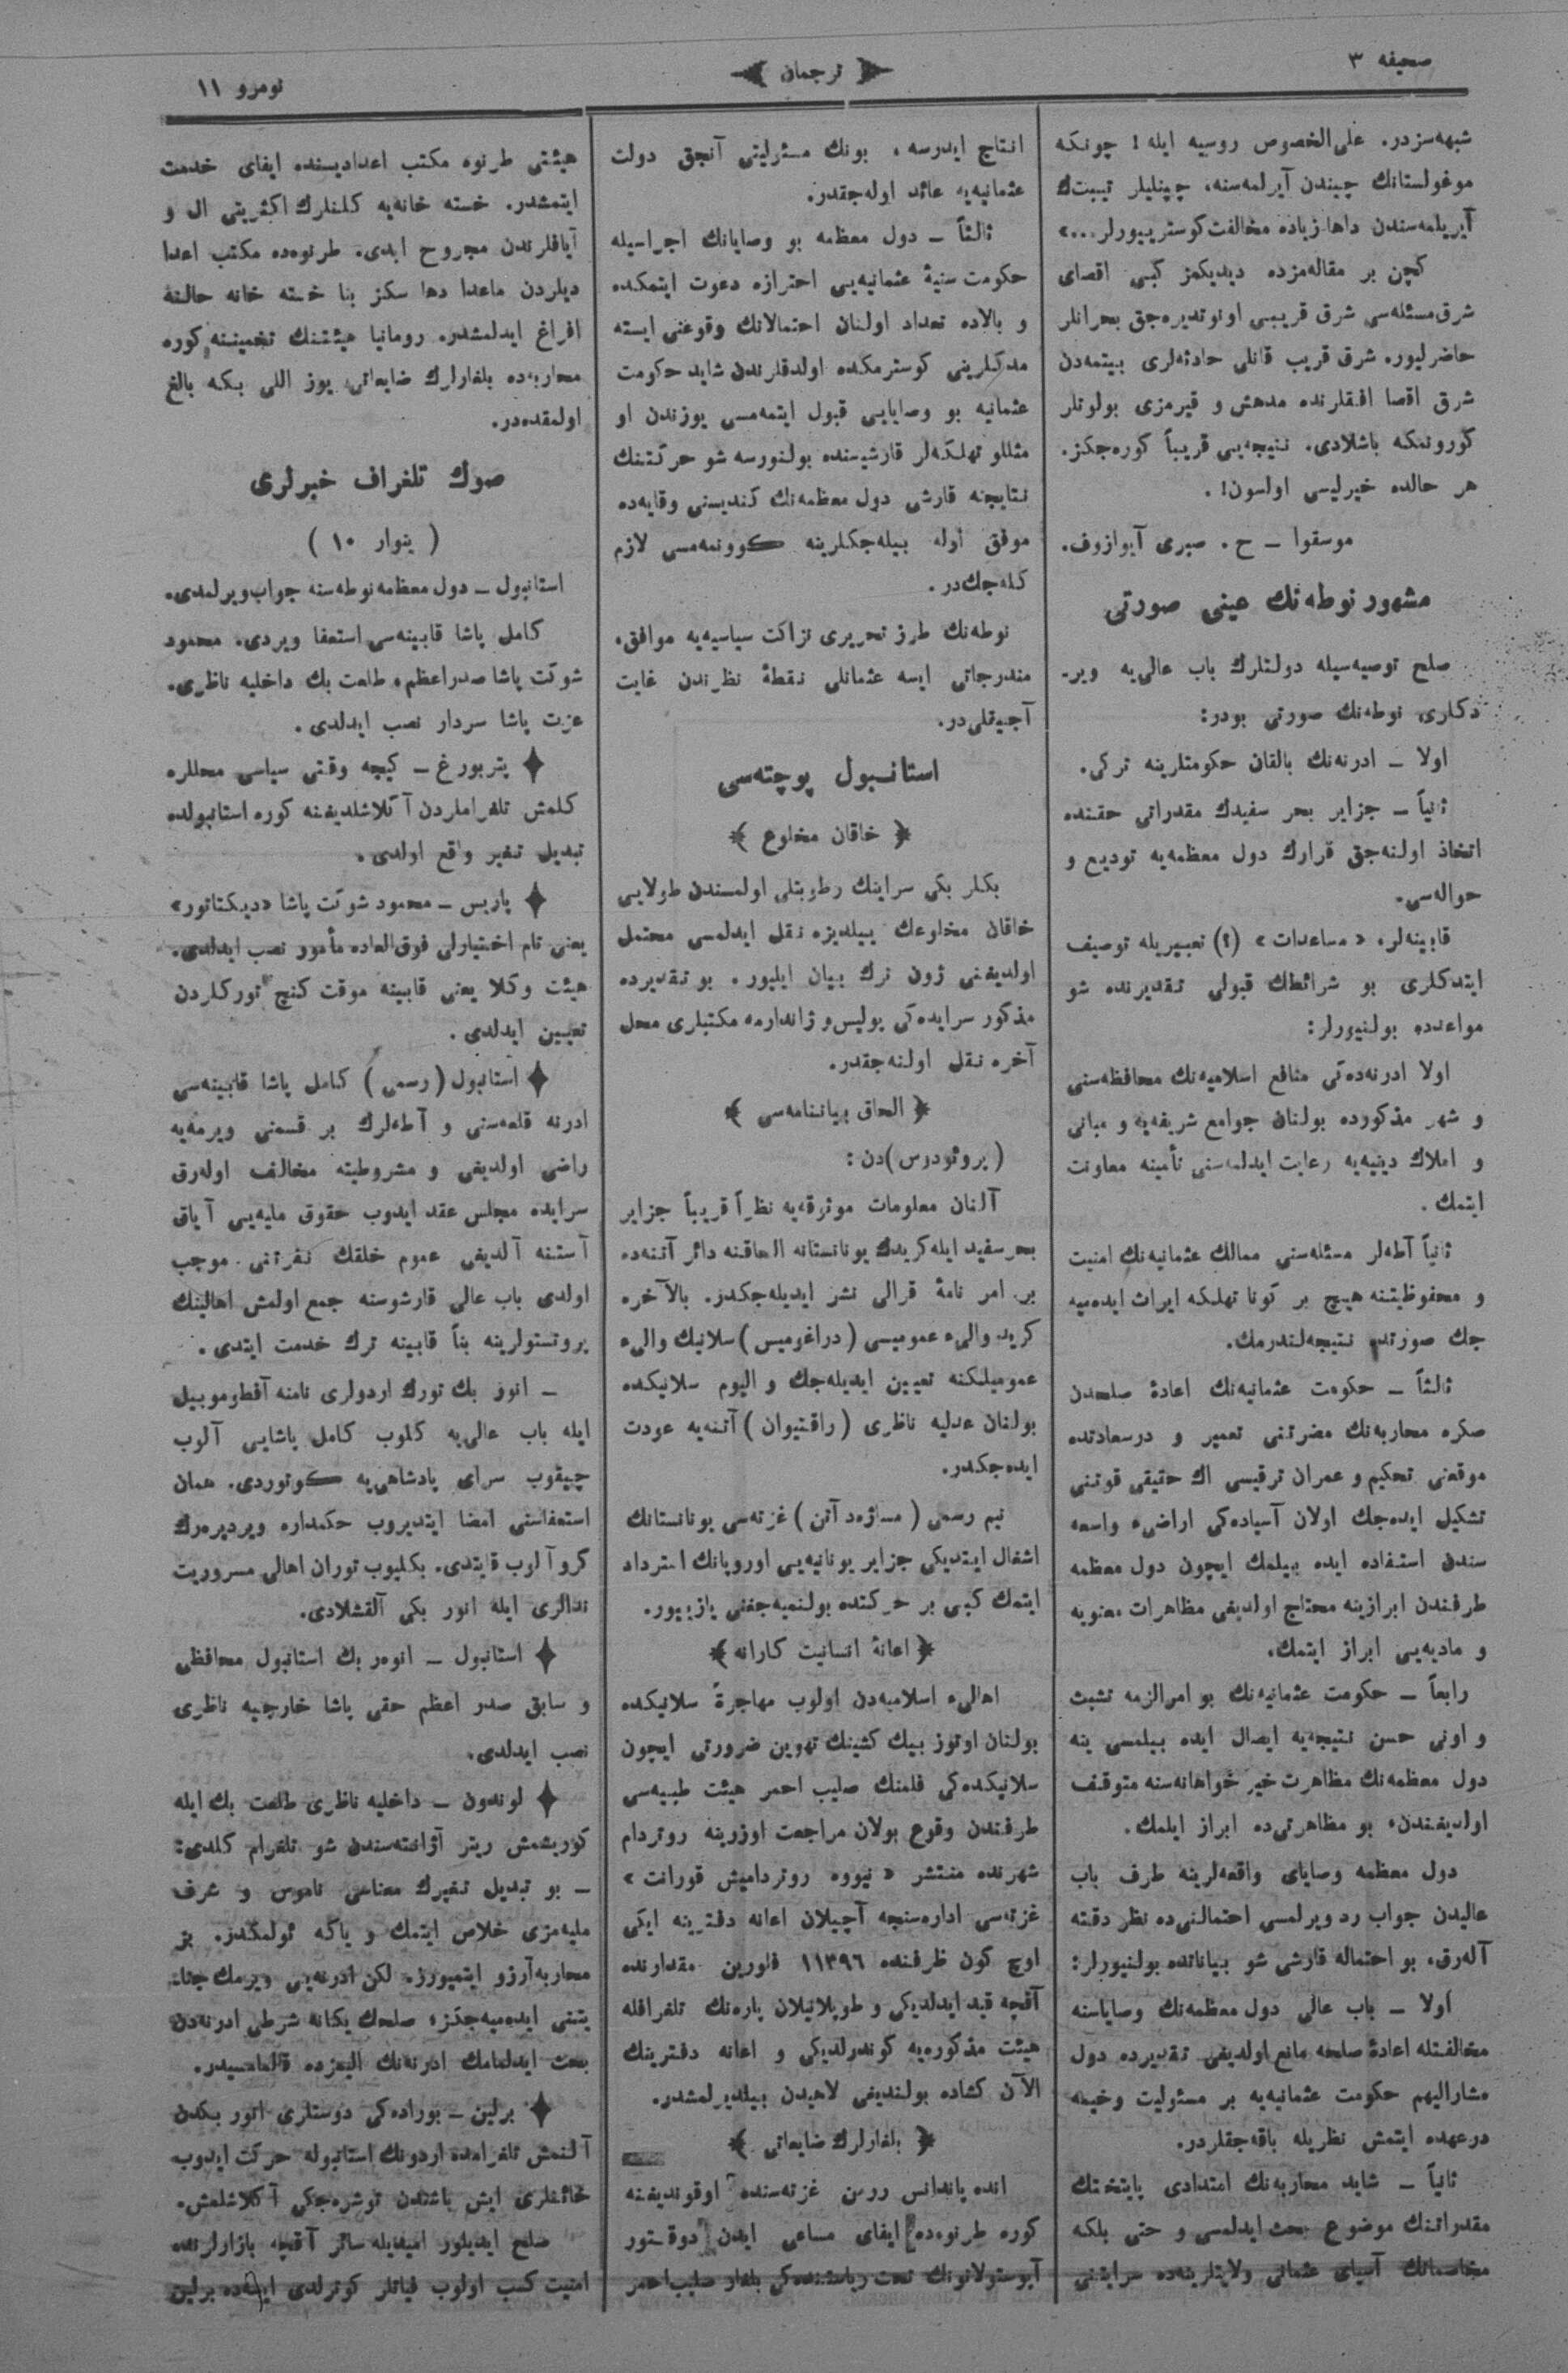 صحیفه ۳
ترجمان
نومرو ۱۱
شبهه‌سزدر. علی‌الخصوص روسیه ایله! چونکه
موغولستانك چیندن آیرلمه‌سنه، چینلیلر تیبتك
آیریلمه‌سندن داها زیاده مخالفت کوستریورلر...»
کچن بر مقاله‌مزده دیدیکمز کبی اقصای
شرق مسئله‌سی شرق قریبی اونوتدیره‌جق بحرانلر
حاضرلیور. شرق قریب قانلی حادثه‌لری بیتمه‌دن
شرق اقصا افقلرنده مدهش و قیرمزی بولوتلر
کورونمکه باشلادی. نتیجه‌یی قریباً کوره‌جکز.
هر حالده خیرلیسی اولسون!.
موسقوا – ح. صبری آیوازوف.
مشهور نوطه‌نك عینی صورتی
صلح توصیه‌سیله دولتلرك باب عالی‌یه ویر-
دکلری نوطه‌نك صورتی بودر:
اولا – ادرنه‌نك بالقان حکومتلرینه ترکی.
ثانیاً – جزایر بحر سفیدك مقدراتی حقنده
اتخاذ اولنه‌جق قرارك دول معظمه‌یه تودیع و
حواله‌سی.
قابینه‌لر، «مساعدات» (؟) تعبیریله توصیف
ایتدکلری بو شرائطك قبولی تقدیرنده شو
مواعدده بولنیورلر:
اولا ادرنه‌ده‌کی منافع اسلامیه‌نك محافظه‌سنی
و شهر مذکورده بولنان جوامع شریفه‌یه و مبانی
و املاك دینیه‌یه رعایت ایدلمه‌سنی تأمینه معاونت
ایتمك.
ثانیاً آطه‌لر مسئله‌سنی ممالك عثمانیه‌نك امنیت
و محفوظیتنه هیچ بر کونا تهلکه ایراث ایده‌میه
جك صورتده نتیجه‌لندرمك.
ثالثاً – حکومت عثمانیه‌نك اعادۀ صلحدن
صکره محاربه‌نك مضرتنی تعمیر و درسعادتده
موقعنی تحکیم و عمران ترقیسی اك حقیقی قوتنی
تشکیل ایده‌جك اولان آسیاده‌کی اراضیء واسعه
سندن استفاده ایده بیلمك ایچون دول معظمه
طرفندن ابرازینه محتاج اولدیغی مظاهرات معنویه
و مادیه‌یی ابراز ایتمك.
رابعاً – حکومت عثمانیه‌نك بو امرالزمه تشبث
و اونی حسن نتیجه‌یه ایصال ایده بیلمسی ینه
دول معظمه‌نك مظاهرت خیرخواهانه‌سنه متوقف
اولدیغندن، بو مظاهرتی‌ده ابراز ایلمك.
دول معظمه وصایای واقعه‌لرینه طرف باب
عالیدن جواب رد ویرلمسی احتمالنی‌ده نظر دقته
آله‌رق، بو احتماله قارشی شو بیاناتده بولنیورلر:
اولا – باب عالی دول معظمه‌نك وصایاسنه
مخالفتله اعادۀ صلحه مانع اولدیغی تقدیرده دول
مشارالیهم حکومت عثمانیه‌یه بر مسئولیت وخیمه
درعهده ایتمش نظریله باقه‌جقلردر.
ثانیاً – شاید محاربه‌نك امتدادی پایتختك
مقدراتنك موضوع بحث ایدلمسی و حتی بلکه
مخاصماتك آسیای عثمانی ولایتلرینه‌ده سرایتنی
انتاج ایدرسه، بونك مسئولیتی آنجق دولت
عثمانیه‌یه عائد اوله‌جقدر.
ثالثاً – دول معظمه بو وصایانك اجراسیله
حکومت سنیۀ عثمانیه‌یی احترازه دعوت ایتمکده
و بالاده تعداد اولنان احتمالاتك وقوعنی ایسته
مدکلرینی کوسترمکده اولدقلرندن شاید حکومت
عثمانیه بو وصایایی قبول ایتمه‌مسی یوزندن او
مثللو تهلکه‌لر قارشیسنده بولنورسه شو حرکتنك
نتایجنه قارشی دول معظمه‌نك کندیسنی وقایه‌ده
موفق اوله بیله‌جکلرینه کوونمه‌مسی لازم
کله‌جك‌در.
نوطه‌نك طرز تحریری نزاکت سیاسیه‌یه موافق،
مندرجاتی ایسه عثمانلی نقطۀ نظرندن غایت
آجیقلی‌در.
استانبول پوچته‌سی
﴿ خاقان مخلوع ﴾
بکلر بکی سراینك رطوبتلی اولمسندن طولایی
خاقان مخلوعك ییلدیزه نقل ایدلمسی محتمل
اولدیغنی ژون ترك بیان ایلیور. بو تقدیرده
مذکور سرایده‌کی پولیس و ژاندارمه مکتبلری محل
آخره نقل اولنه‌جقدر.
﴿ الحاق بیاننامه‌سی ﴾
(پروئودوس) دن:
آلنان معلومات موثوقه‌یه نظراً قریباً جزایر
بحرسفید ایله کریدك یونانستانه الحاقنه دائر آتنه‌ده
بر امر نامۀ قرالی نشر ایدیله‌جکدر. بالآخره
کرید والیء عمومیسی (دراغومیس) سلانیك والیء
عمومیلکنه تعیین ایدیله‌جك و الیوم سلانیکده
بولنان عدلیه ناظری (راقتیوان) آتنه‌یه عودت
ایده‌جکدر.
نیم رسمی (مساژه‌د آتن) غزته‌سی یونانستانك
اشغال ایتدیکی جزایر یونانیه‌یی اوروپانك استرداد
ایتمك کبی بر حرکتده بولنمیه‌جغنی یازییور.
﴿ اعانۀ انسانیت کارانه ﴾
اهالیء اسلامیه‌دن اولوب مهاجرةً سلانیکده
بولنان اوتوز بیك کشینك تهوین ضرورتی ایچون
سلانیکده‌کی فلمنك صلیب احمر هیئت طبیه‌سی
طرفندن وقوع بولان مراجعت اوزرینه روتردام
شهرنده منتشر «نیووه روترداميش قورانت»
غزته‌سی اداره‌سنچه آچیلان اعانه دفترینه ایکی
اوچ کون ظرفنده ۱۱۳۹٦ فلورین مقدارنده
آقچه قید ایدلدیکی و طوپلانیلان پاره‌نك تلغرافله
هیئت مذکوره‌یه کوندرلدیکی و اعانه دفترینك
الآن کشاده بولندیغی لاهیدن بیلدیرلمشدر.
﴿ بلغارلرك ضایعاتی ﴾
انده‌پاندانس رومن غزته‌سنده اوقوندیغنه
کوره طرنوه‌ده ایفای مساعی ایدن دوقتور
آپوستولانونك تحت ریاستنده‌کی بلغار صلیب‌احمر
هیئتی طرنوه مکتب اعدادیسنده ایفای خدمت
ایتمشدر. خسته خانه‌یه کلنلرك اکثریتی ال و
آیاقلرندن مجروح ایدی. طرنوه‌ده مکتب اعدا
دیلردن ماعدا دها سکز بنا خسته خانه حالنه
افراغ ایدلمشدر. رومانیا هیئتنك تخمیننه کوره
محاربه‌ده بلغارلرك ضایعاتی یوز اللی بیکه بالغ
اولمقده‌در.
صوك تلغراف خبرلری
(ینوار ۱۰)
استانبول – دول معظمه نوطه‌سنه جواب ویرلمدی.
کامل پاشا قابینه‌سی استعفا ویردی. محمود
شوکت پاشا صدراعظم، طلعت بك داخلیه ناظری،
عزت پاشا سردار نصب ایدلدی.
پتربورغ – کیچه وقتی سیاسی محللره
کلمش تلغراملردن آکلاشلدیغنه کوره استانبولده
تبدیل تغیر واقع اولدی.
پاریس – محمود شوکت پاشا «دیکتاتور»
یعنی تام اختیارلی فوق‌العاده مأمور نصب ایدلدی.
هیئت وکلا یعنی قابینه موقت کنج تورکلردن
تعیین ایدلدی.
استانبول (رسمی) کامل پاشا قابینه‌سی
ادرنه قلعه‌سنی و آطه‌لرك بر قسمنی ویرمه‌یه
راضی اولدیغی و مشروطیته مخالف اوله‌رق
سرایده مجلس عقد ایدوب حقوق ملیه‌یی آیاق
آستنه آلدیغی عموم خلقك نفرتنی موجب
اولدی باب عالی قارشوسنه جمع اولمش اهالینك
پروتستولرینه بناً قابینه ترك خدمت ایتدی.
– انور بك تورك اردولری نامنه آفطوموبیل
ایله باب عالی‌یه کلوب کامل پاشایی آلوب
چیقوب سرای پادشاهی‌یه کوتوردی. همان
استعفاسنی امضا ایتدیروب حکمداره ویردیره‌رك
کرو آلوب قایتدی. بکلیوب توران اهالی مسروریت
ندالری ایله انور بکی آلقشلادی.
استانبول – انوه‌ر بك استانبول محافظی
و سابق صدر اعظم حقی پاشا خارجیه ناظری
نصب ایدلدی.
لوندون – داخلیه ناظری طلعت بك ایله
کوریشمش ریتر آژانته‌سندن شو تلغرام کلدی:
– بو تبدیل تغیرك معناسی ناموس و شرف
ملیه‌مزی خلاص ایتمك و یاکه ئولمکدر. بز
محاربه آرزو ایتمیورز. لکن ادرنه‌یی ویرمك جنا-
یتنی ایده‌میه‌جکز، صلحك یکانه شرطی ادرنه‌دن
بحث ایدلمامك ادرنه‌نك الیمزده قالماسیدر.
برلین – بوراده‌کی دوستلری انور بکدن
آلنمش تلغرامده اردونك استانبوله حرکت ایدوب
خائنلری ایش باشندن توشره‌جکی آکلاشلمش.
صلح ایدیلور امیدیله سائر آقچه بازارلرنده
امنیت کسب اولوب فیاتلر کوترلدی ایسه‌ده برلین